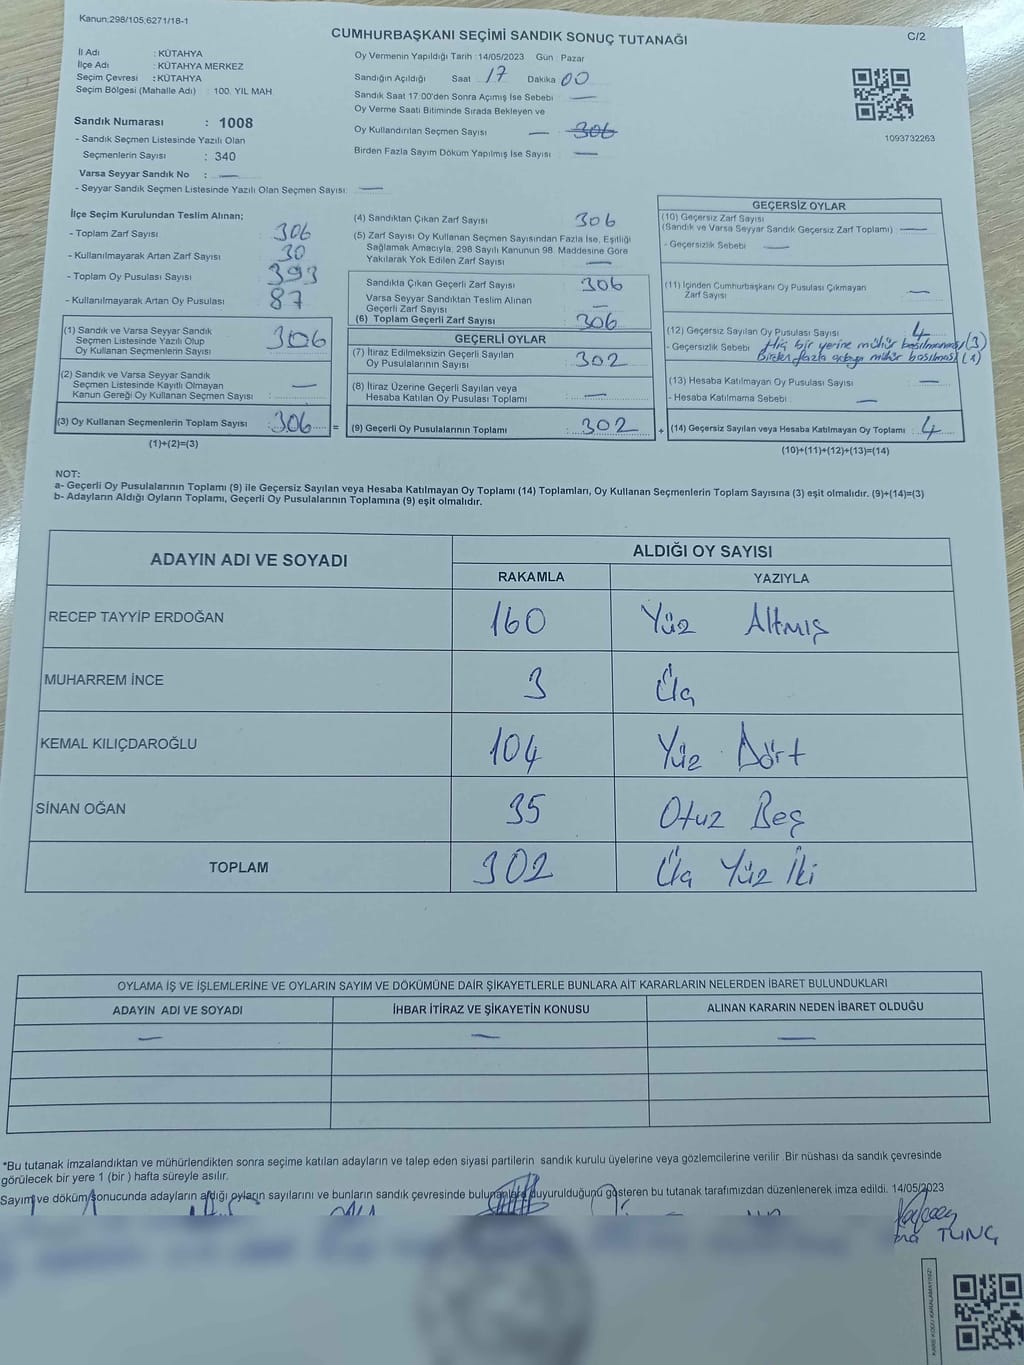 Kanun;298/105;6271/18-1
CUMHURBAŞKANI SEÇİMİ SANDIK SONUÇ TUTANAĞI
C/2
İl Adı : KÜTAHYA
İlçe Adı : KÜTAHYA MERKEZ
Seçim Çevresi : KÜTAHYA
Seçim Bölgesi (Mahalle Adı) : 100. YIL MAH
Oy Vermenin Yapıldığı Tarih : 14/05/2023 Gün : Pazar
Sandığın Açıldığı Saat 17 Dakika 00
Sandık Saat 17:00'den Sonra Açımış İse Sebebi —
Oy Verme Saati Bitiminde Sırada Bekleyen ve
Oy Kullandırılan Seçmen Sayısı — 306
Birden Fazla Sayım Döküm Yapılmış İse Sayısı —
1093732263
Sandık Numarası : 1008
- Sandık Seçmen Listesinde Yazılı Olan
Seçmenlerin Sayısı : 340
Varsa Seyyar Sandık No : —
- Seyyar Sandık Seçmen Listesinde Yazılı Olan Seçmen Sayısı: —
İlçe Seçim Kurulundan Teslim Alınan;
- Toplam Zarf Sayısı 306
- Kullanılmayarak Artan Zarf Sayısı 30
- Toplam Oy Pusulası Sayısı 393
- Kullanılmayarak Artan Oy Pusulası 87
(1) Sandık ve Varsa Seyyar Sandık
Seçmen Listesinde Yazılı Olup
Oy Kullanan Seçmenlerin Sayısı 306
(2) Sandık ve Varsa Seyyar Sandık
Seçmen Listesinde Kayıtlı Olmayan
Kanun Gereği Oy Kullanan Seçmen Sayısı : —
(3) Oy Kullanan Seçmenlerin Toplam Sayısı : 306 =
(1)+(2)=(3)
(4) Sandıktan Çıkan Zarf Sayısı 306
(5) Zarf Sayısı Oy Kullanan Seçmen Sayısından Fazla İse, Eşitliği
Sağlamak Amacıyla, 298 Sayılı Kanunun 98. Maddesine Göre
Yakılarak Yok Edilen Zarf Sayısı —
Sandıkla Çıkan Geçerli Zarf Sayısı 306
Varsa Seyyar Sandıktan Teslim Alınan
Geçerli Zarf Sayısı —
(6) Toplam Geçerli Zarf Sayısı 306
GEÇERLİ OYLAR
(7) İtiraz Edilmeksizin Geçerli Sayılan
Oy Pusulalarının Sayısı 302
(8) İtiraz Üzerine Geçerli Sayılan veya
Hesaba Katılan Oy Pusulası Toplamı —
(9) Geçerli Oy Pusulalarının Toplamı : 302 +
GEÇERSİZ OYLAR
(10) Geçersiz Zarf Sayısı
(Sandık ve Varsa Seyyar Sandık Geçersiz Zarf Toplamı) —
- Geçersizlik Sebebi —
(11) İçinden Cumhurbaşkanı Oy Pusulası Çıkmayan
Zarf Sayısı —
(12) Geçersiz Sayılan Oy Pusulası Sayısı 4
- Geçersizlik Sebebi Hiç bir yerine mühür basılmaması (3)
Birden fazla adaya mühür basılması (1)
(13) Hesaba Katılmayan Oy Pusulası Sayısı —
- Hesaba Katılmama Sebebi —
(14) Geçersiz Sayılan veya Hesaba Katılmayan Oy Toplamı : 4
(10)+(11)+(12)+(13)=(14)
NOT:
a- Geçerli Oy Pusulalarının Toplamı (9) ile Geçersiz Sayılan veya Hesaba Katılmayan Oy Toplamı (14) Toplamları, Oy Kullanan Seçmenlerin Toplam Sayısına (3) eşit olmalıdır. (9)+(14)=(3)
b- Adayların Aldığı Oyların Toplamı, Geçerli Oy Pusulalarının Toplamına (9) eşit olmalıdır.
ADAYIN ADI VE SOYADI ALDIĞI OY SAYISI
RAKAMLA YAZIYLA
RECEP TAYYİP ERDOĞAN 160 Yüz Altmış
MUHARREM İNCE 3 Üç
KEMAL KILIÇDAROĞLU 104 Yüz Dört
SİNAN OĞAN 35 Otuz Beş
TOPLAM 302 Üç Yüz İki
OYLAMA İŞ VE İŞLEMLERİNE VE OYLARIN SAYIM VE DÖKÜMÜNE DAİR ŞİKAYETLERLE BUNLARA AİT KARARLARIN NELERDEN İBARET BULUNDUKLARI
ADAYIN ADI VE SOYADI İHBAR İTİRAZ VE ŞİKAYETİN KONUSU ALINAN KARARIN NEDEN İBARET OLDUĞU
— — —
*Bu tutanak imzalandıktan ve mühürlendikten sonra seçime katılan adayların ve talep eden siyasi partilerin sandık kurulu üyelerine veya gözlemcilerine verilir. Bir nüshası da sandık çevresinde
görülecek bir yere 1 (bir ) hafta süreyle asılır.
Sayım ve döküm sonucunda adayların aldığı oyların sayılarını ve bunların sandık çevresinde bulunanlara duyurulduğunu gösteren bu tutanak tarafımızdan düzenlenerek imza edildi. 14/05/2023
TUNÇ